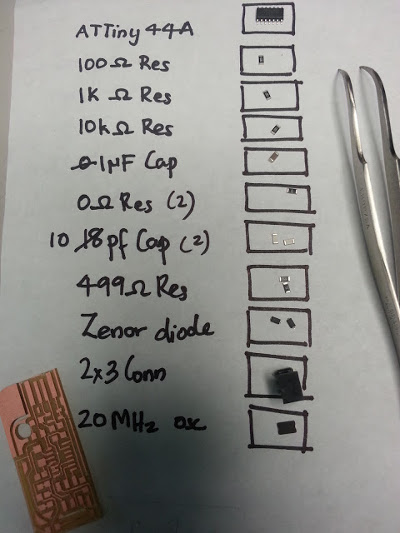 ATTiny 44A
100Ω Res
1K Ω Res
10kΩ Res
0.1µF Cap
0Ω Res (2)
10 18pf Cap (2)
499Ω Res
Zenor diode
2x3 Conn
20MHz osc